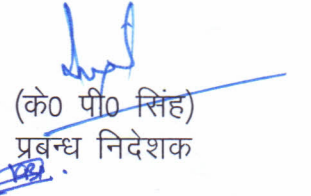 (के0 पी0 सिंह)
प्रबन्ध निदेशक